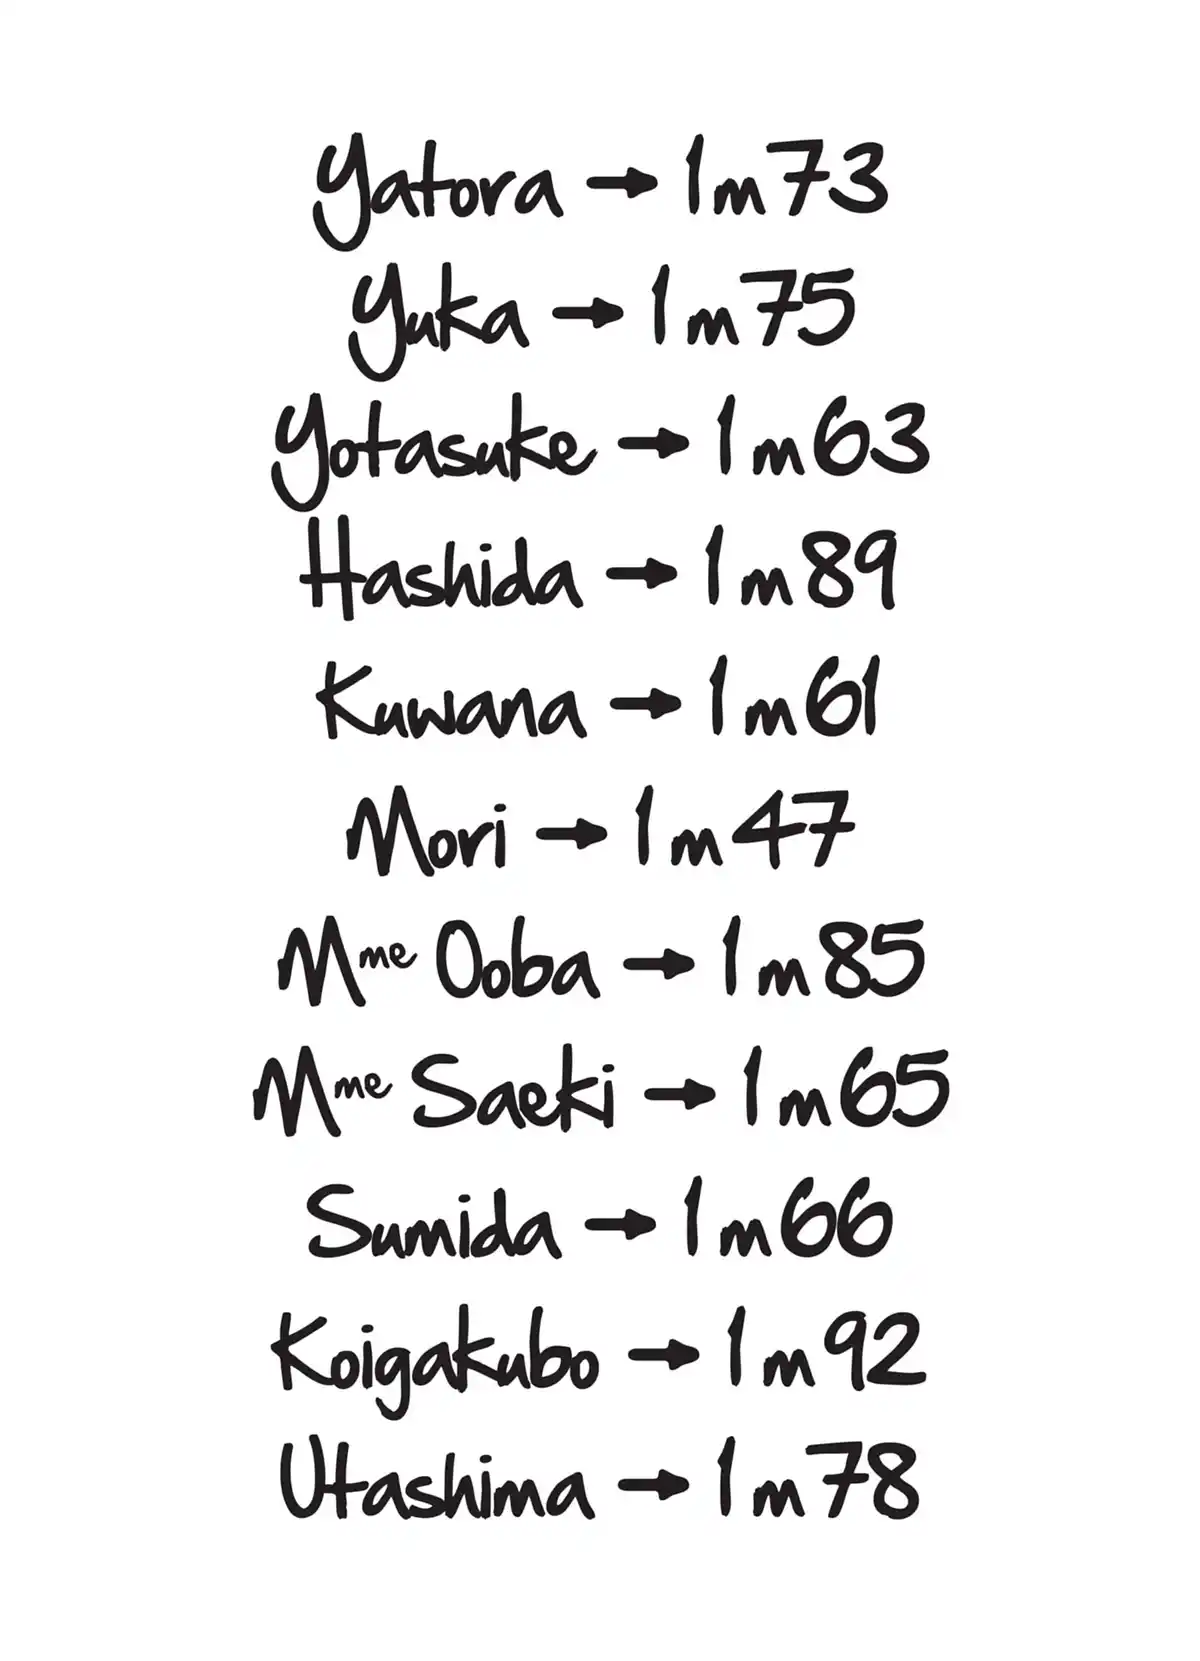 Yatora → 1m73
Yuka → 1m75
Yotasuke → 1m63
Hashida → 1m89
Kuwana → 1m61
Mori → 1m47
Mme Ooba → 1m85
Mme Saeki → 1m65
Sumida → 1m66
Koigakubo → 1m92
Utashima → 1m78